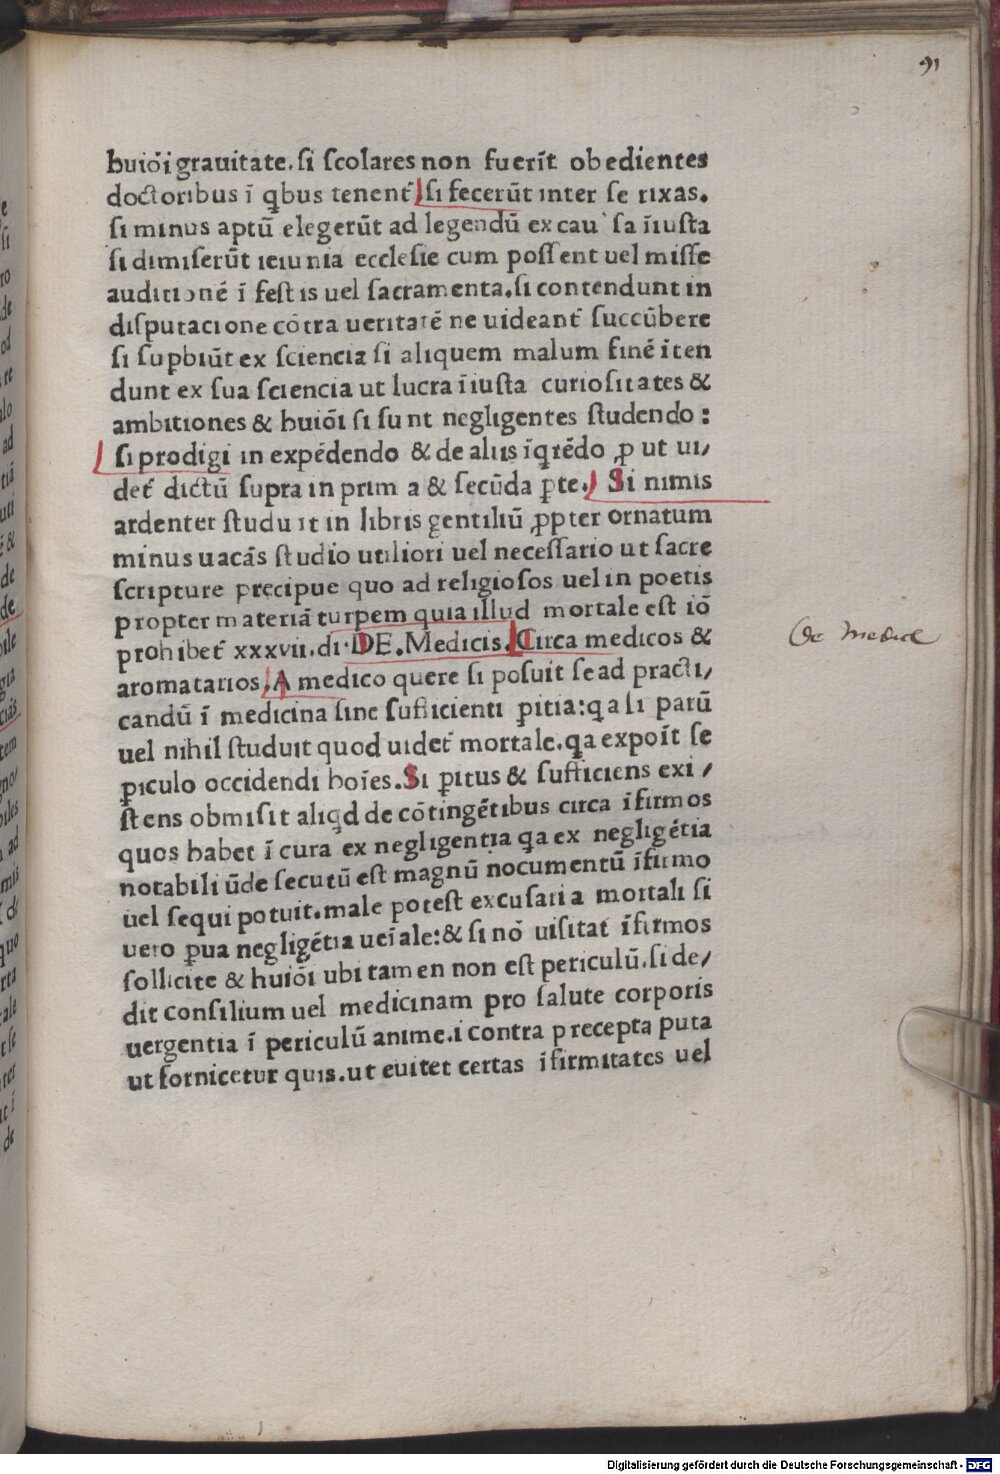 91
huiōi grauitate. si scolares non fuerīt obedientes
doctoribus ī qbus tenent̄ si fecerūt inter se rixas.
si minus aptū elegerūt ad legendū ex cau sa īiusta
si dimiserūt ieiunia ecclesie cum possent uel misse
auditionē ī festis uel sacramenta. si contendunt in
disputacione cōtra ueritatē ne uideant̄ succūbere
si supbiūt ex sciencia si aliquem malum finē iten
dunt ex sua sciencia ut lucra īiusta curiositates &
ambitiones & huiōi si sunt negligentes studendo:
si prodigi in expēdendo & de aliis īqrēdo ꝓ ut ui/
det̄ dictū supra in prima & secūda ꝑte. Si nimis
ardenter studuit in libris gentiliū ꝓpter ornatum
minus uacās studio utiliori uel necessario ut sacre
scripture precipue quo ad religiosos uel in poetis
propter materiā turpem quia illud mortale est iō
prohibet̄ xxxvii. di. DE. Medicis. Circa medicos &
aromatarios. A medico quere si posuit se ad practi/
candū ī medicina sine sufficienti ꝑitia: qa si parū
uel nihil studuit quod uidet̄ mortale. qa expoīt se
ꝑiculo occidendi hoīes. Si ꝑitus & sufficiens exi/
stens obmisit aliqd de cōtingētibus circa īfirmos
quos habet ī cura ex negligentia qa ex negligētia
notabili ūde secutū est magnū nocumentū īfirmo
uel sequi potuit. male potest excusari a mortali si
uero ꝑua negligētia ueīale: & si nō uisitat īfirmos
sollicite & huiōi ubi tamen non est periculū. si de/
dit consilium uel medicinam pro salute corporis
uergentia ī periculū anime. i contra precepta puta
ut fornicetur quis. ut euitet certas īfirmitates uel
De Medicis
Digitalisierung gefördert durch die Deutsche Forschungsgemeinschaft - DFG